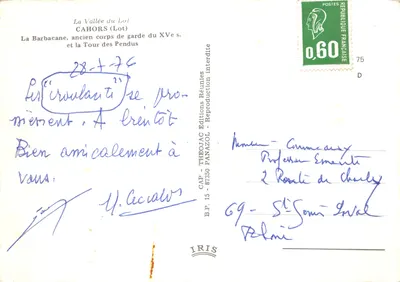 La Vallée du Lot
CAHORS (Lot)
La Barbacane, ancien corps de garde du XVe s.
et la Tour des Pendus
28-7-76
Les "croulants" se pro-
mènent. A bientôt
Bien amicalement à
vous.
CAP - THEOJAC Editions Réunies
B.P. 15 - 87350 PANAZOL - Reproduction interdite
IRIS
POSTES
REPUBLIQUE FRANÇAISE
0,60
75
D
Monsieur
Professeur
2 Route de
69 - St
Rhône